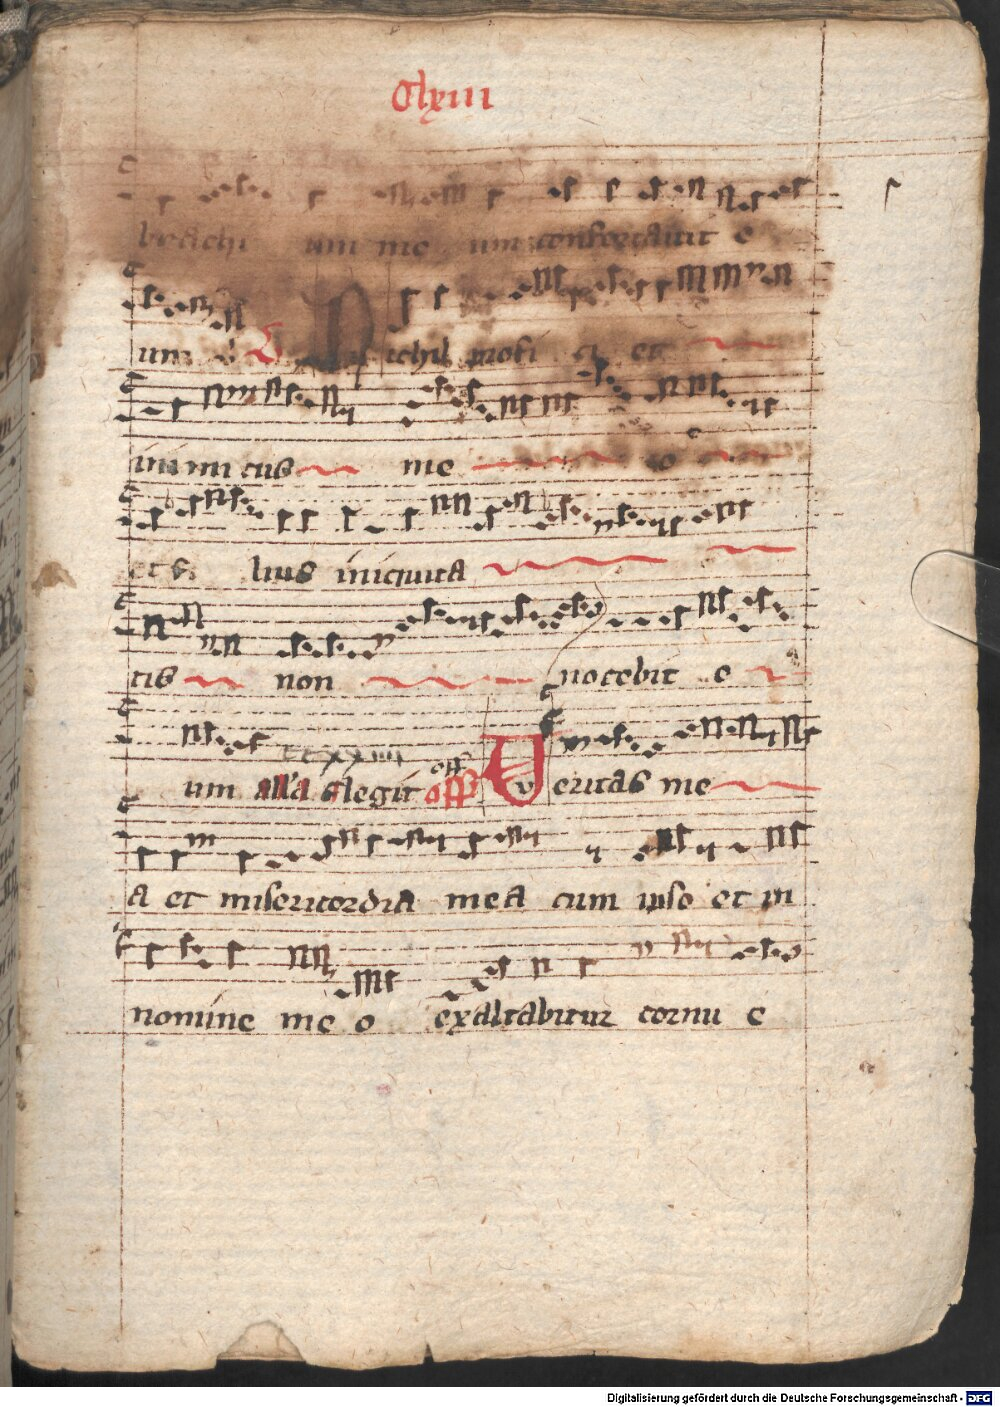 Clxiii
brachi um me um confortavit e
um V Nichil profi ci et
inimicus me eo
et fi lius iniquita
tis non nocebit e
um all'a Elegit off Veritas me
a et misericordia mea cum ipso et in
nomine me o exaltabitur cornu e
Digitalisierung gefördert durch die Deutsche Forschungsgemeinschaft - DFG